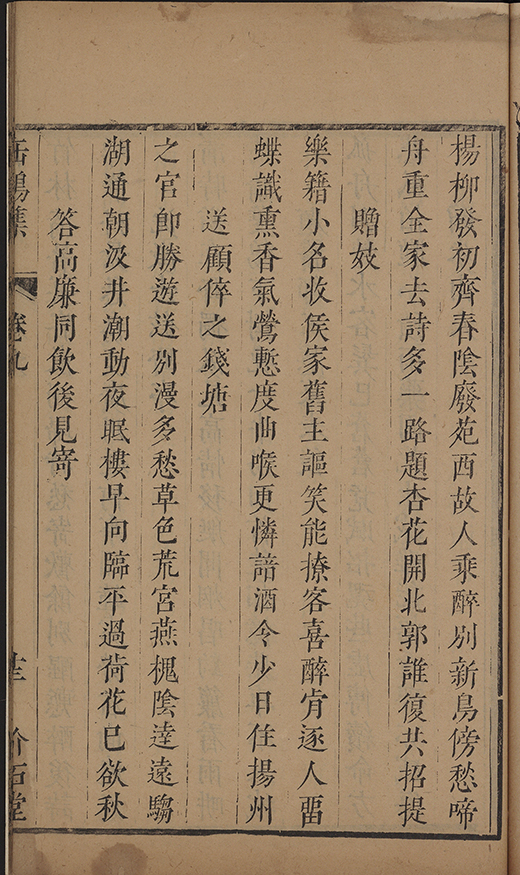 楊柳發初齊春陰廢苑西故人乘醉别新鳥傍愁啼
舟重全家去詩多一路題杏花開北郭誰復共招提
贈妓
樂籍小名收侯家舊主謳笑能撩客喜醉肯逐人畱
蝶識熏香氣鶯慙度曲喉更憐諳酒令少日住揚州
送顧倅之錢塘
之官卽勝遊送别漫多愁草色荒宮燕槐陰逹遠騶
湖通朝汲井潮動夜眠樓早向臨平過荷花已欲秋
答高廉同飲後見寄
缶鳴集 卷九 十二 介石堂